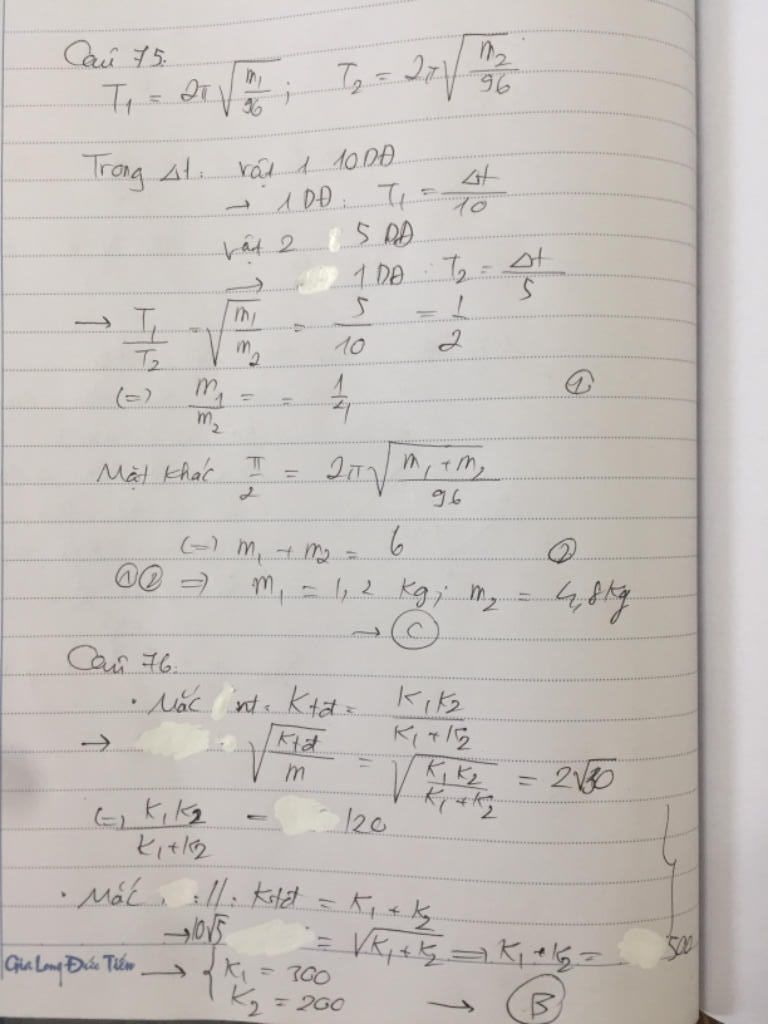 Câu 75:
T₁ = 2π√(m₁/96); T₂ = 2π√(m₂/96)
Trong Δt: vật 1 10DĐ
→ 1DĐ: T₁ = Δt/10
vật 2 5 DĐ
→ 1DĐ: T₂ = Δt/5
→ T₁/T₂ = √(m₁/m₂) = 5/10 = 1/2
(=) m₁/m₂ = = 1/4 ①
Mặt khác π/2 = 2π√((m₁ + m₂)/96)
(=) m₁ + m₂ = 6 ②
①② ⇒ m₁ = 1,2 kg; m₂ = 4,8kg
→ Ⓒ
Câu 76:
• Mắc nt: Ktđ = K₁K₂/(K₁+K₂)
→ √(Ktđ/m) = √(K₁K₂/(K₁+K₂)) = 2√30
(=) K₁K₂/(K₁+K₂) = 120
• Mắc //: Ktđ = K₁ + K₂
→ 10√5 = √(K₁+K₂) ⇒ K₁+K₂ = 500
Gia Long Đức Tiến → { K₁ = 300
K₂ = 200 → Ⓑ